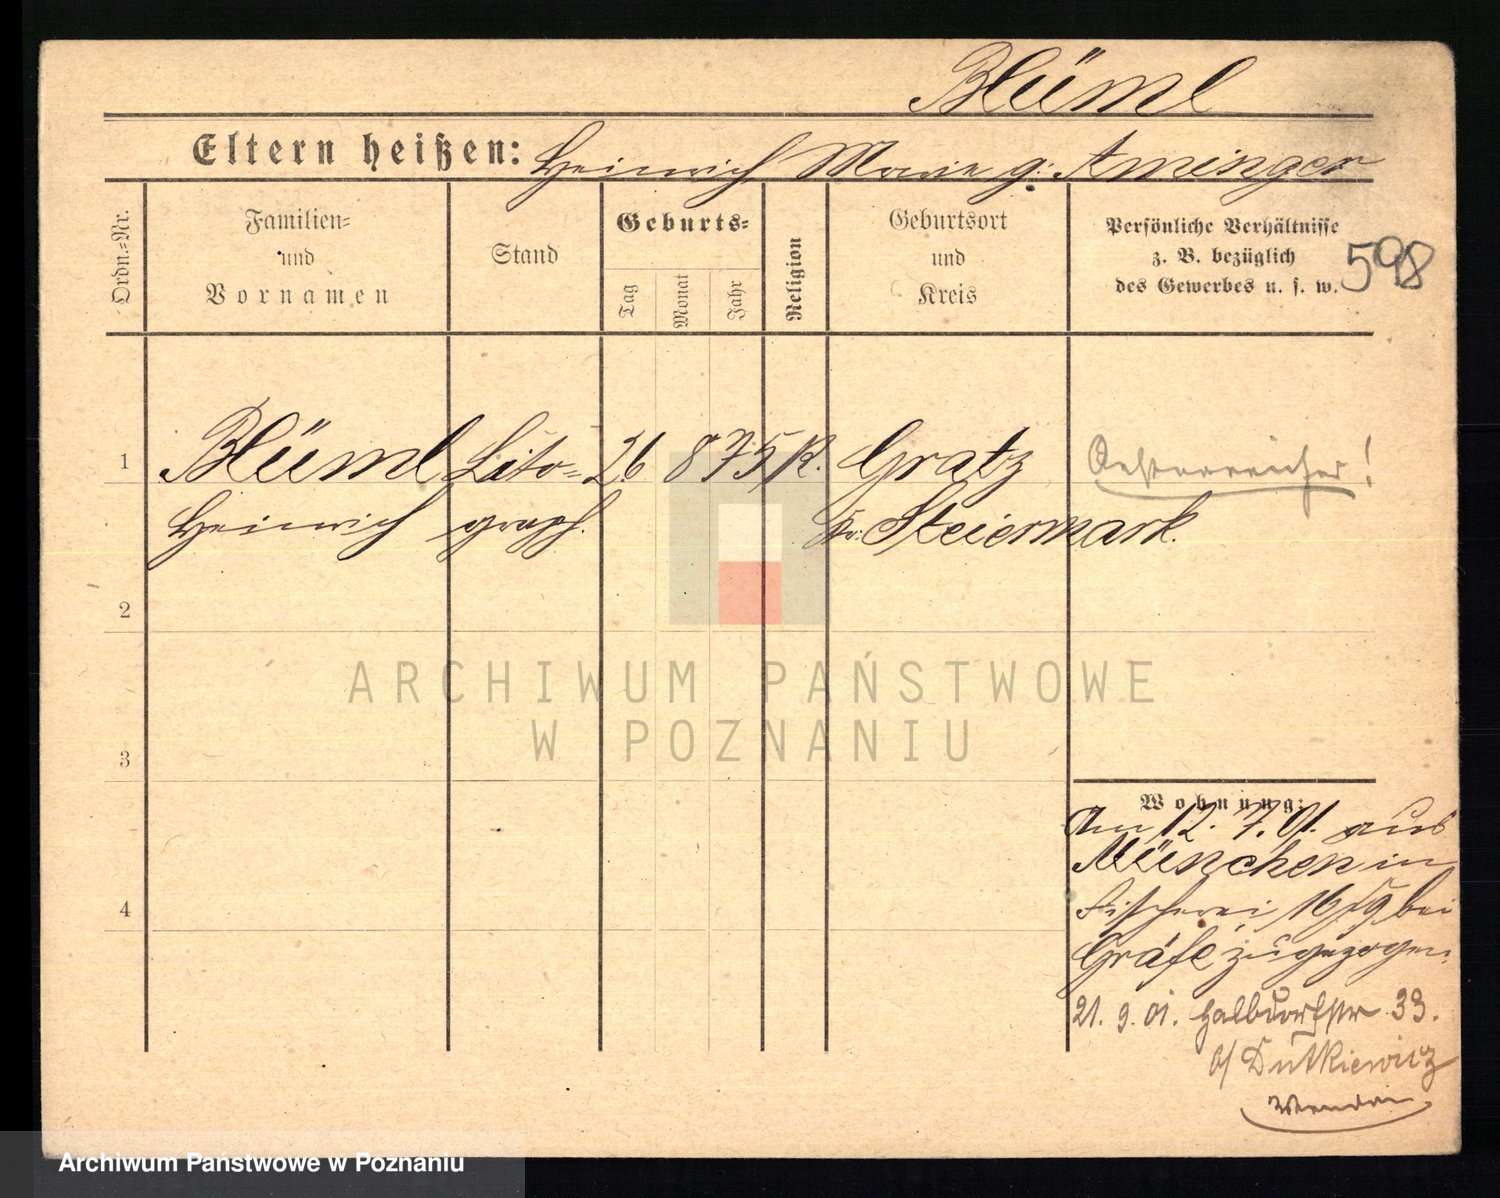 Blüml
Eltern heißen: Heinrich Marie g: Aminger
Ordn.=Nr.
Familien=
und
Vornamen
Stand
Geburts=
Tag
Monat
Jahr
Religion
Geburtsort
und
Kreis
Persönliche Verhältnisse
z. B. bezüglich
des Gewerbes u. s. w.
598
1 Blüml Lito= 26 8 75 K. Gratz Oesterreicher!
Heinrich graph. Kr. Steiermark.
2
ARCHIWUM PAŃSTWOWE
W POZNANIU
3
Wohnung:
Am 12. 7. 01. aus
München in
4
Fischerei 16 bei
Gräfe zugezogen.
21. 9. 01. Halbdorfstr 33.
b/ Dutkiewicz
Archiwum Państwowe w Poznaniu